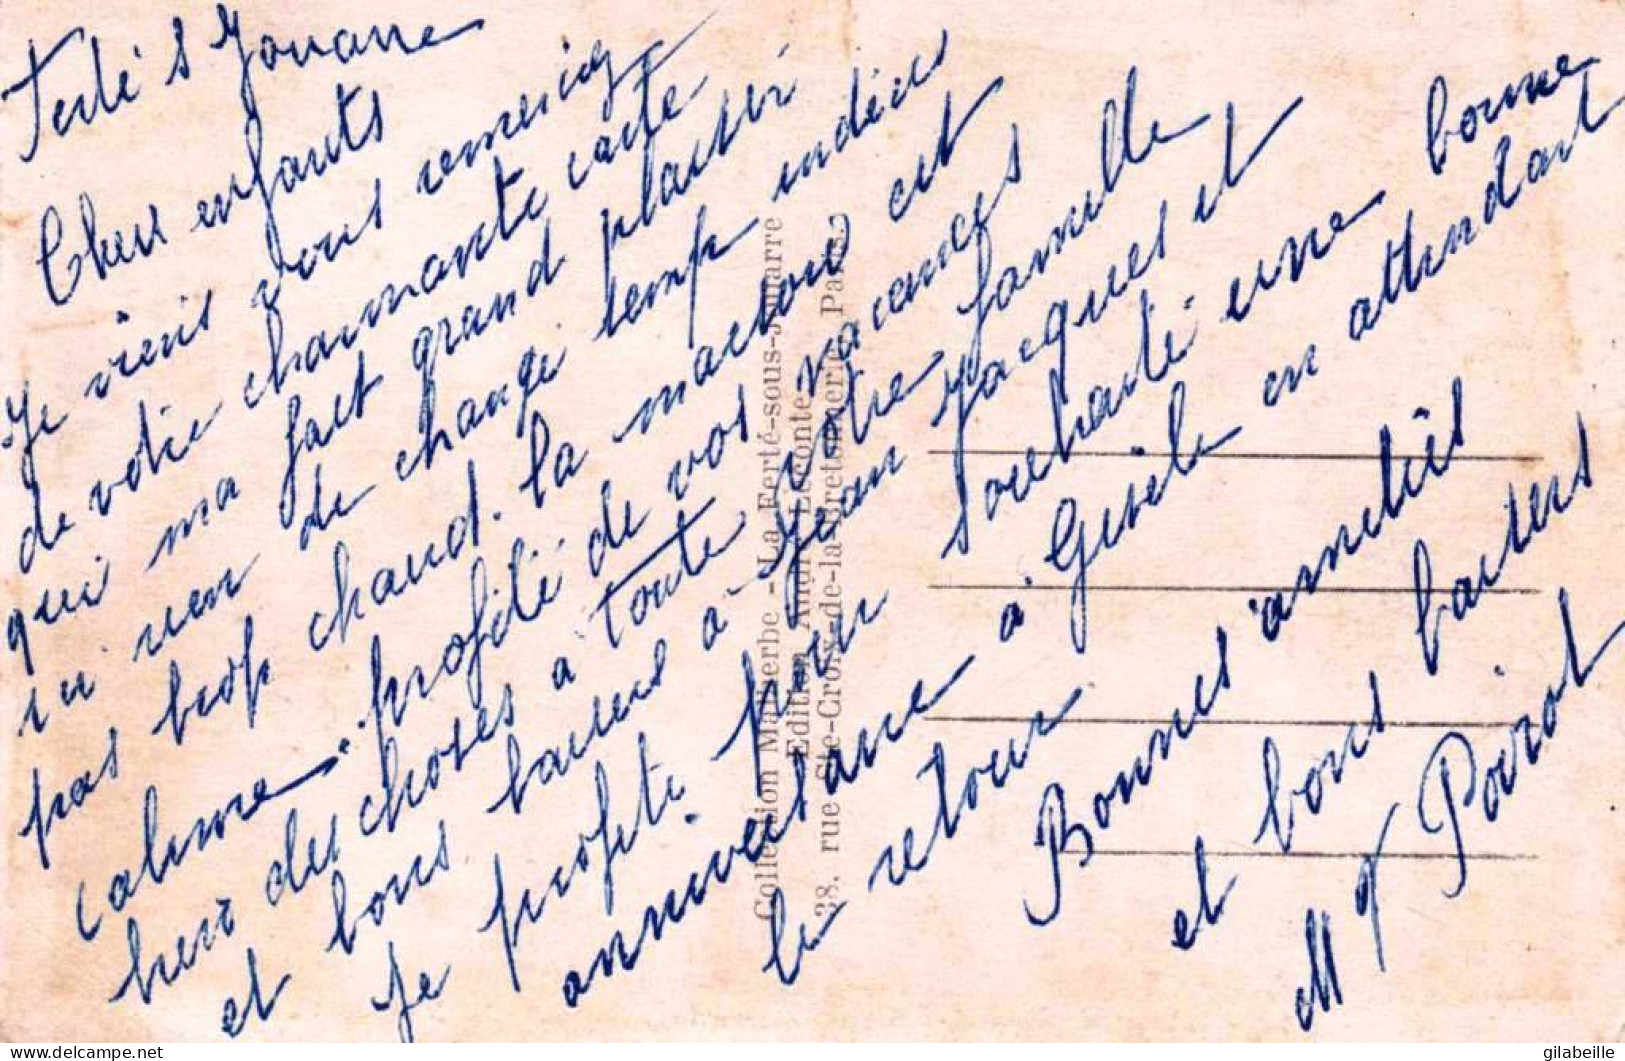 Ferté s Jouarre
Chers enfants
Je viens vous remercier
de votre charmante carte
qui ma fait grand plaisir
ici rien de changé temp indécis
pas trop chaud. la maison est
calme. profité de vos vacances
bien des choses a toute votre famille
et bons baisers a Jean Jacques et
Je profite pour souhaité une bonne
anniversaire a Gisèle en attendant
le retour
Bonnes amitiés
et bons baisers
M Poirot
Collection Malherbe - La Ferté-sous-Jouarre
Edition André Leconte
38, rue Ste-Croix-de-la-Bretonnerie Paris.
gilabeille